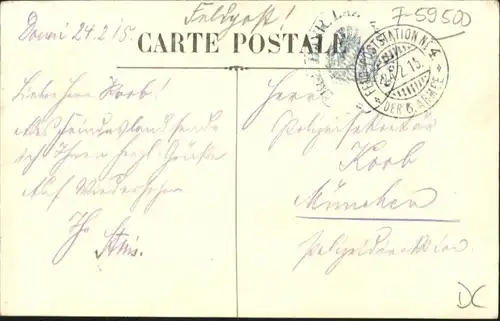 Feldpost!
F-59500
Douai 24.2.15.
CARTE POSTALE
FELDPOSTSTATION No. 4
2.15.
DER 6. ARMEE
Lieber Herr Koob!
Aus Feindesland sende
ich Ihnen herzl. Grüße
Auf Wiedersehen
Ihr
Herrn
Polizeisekretär
Koob
München
Polizeidirektion.
DC